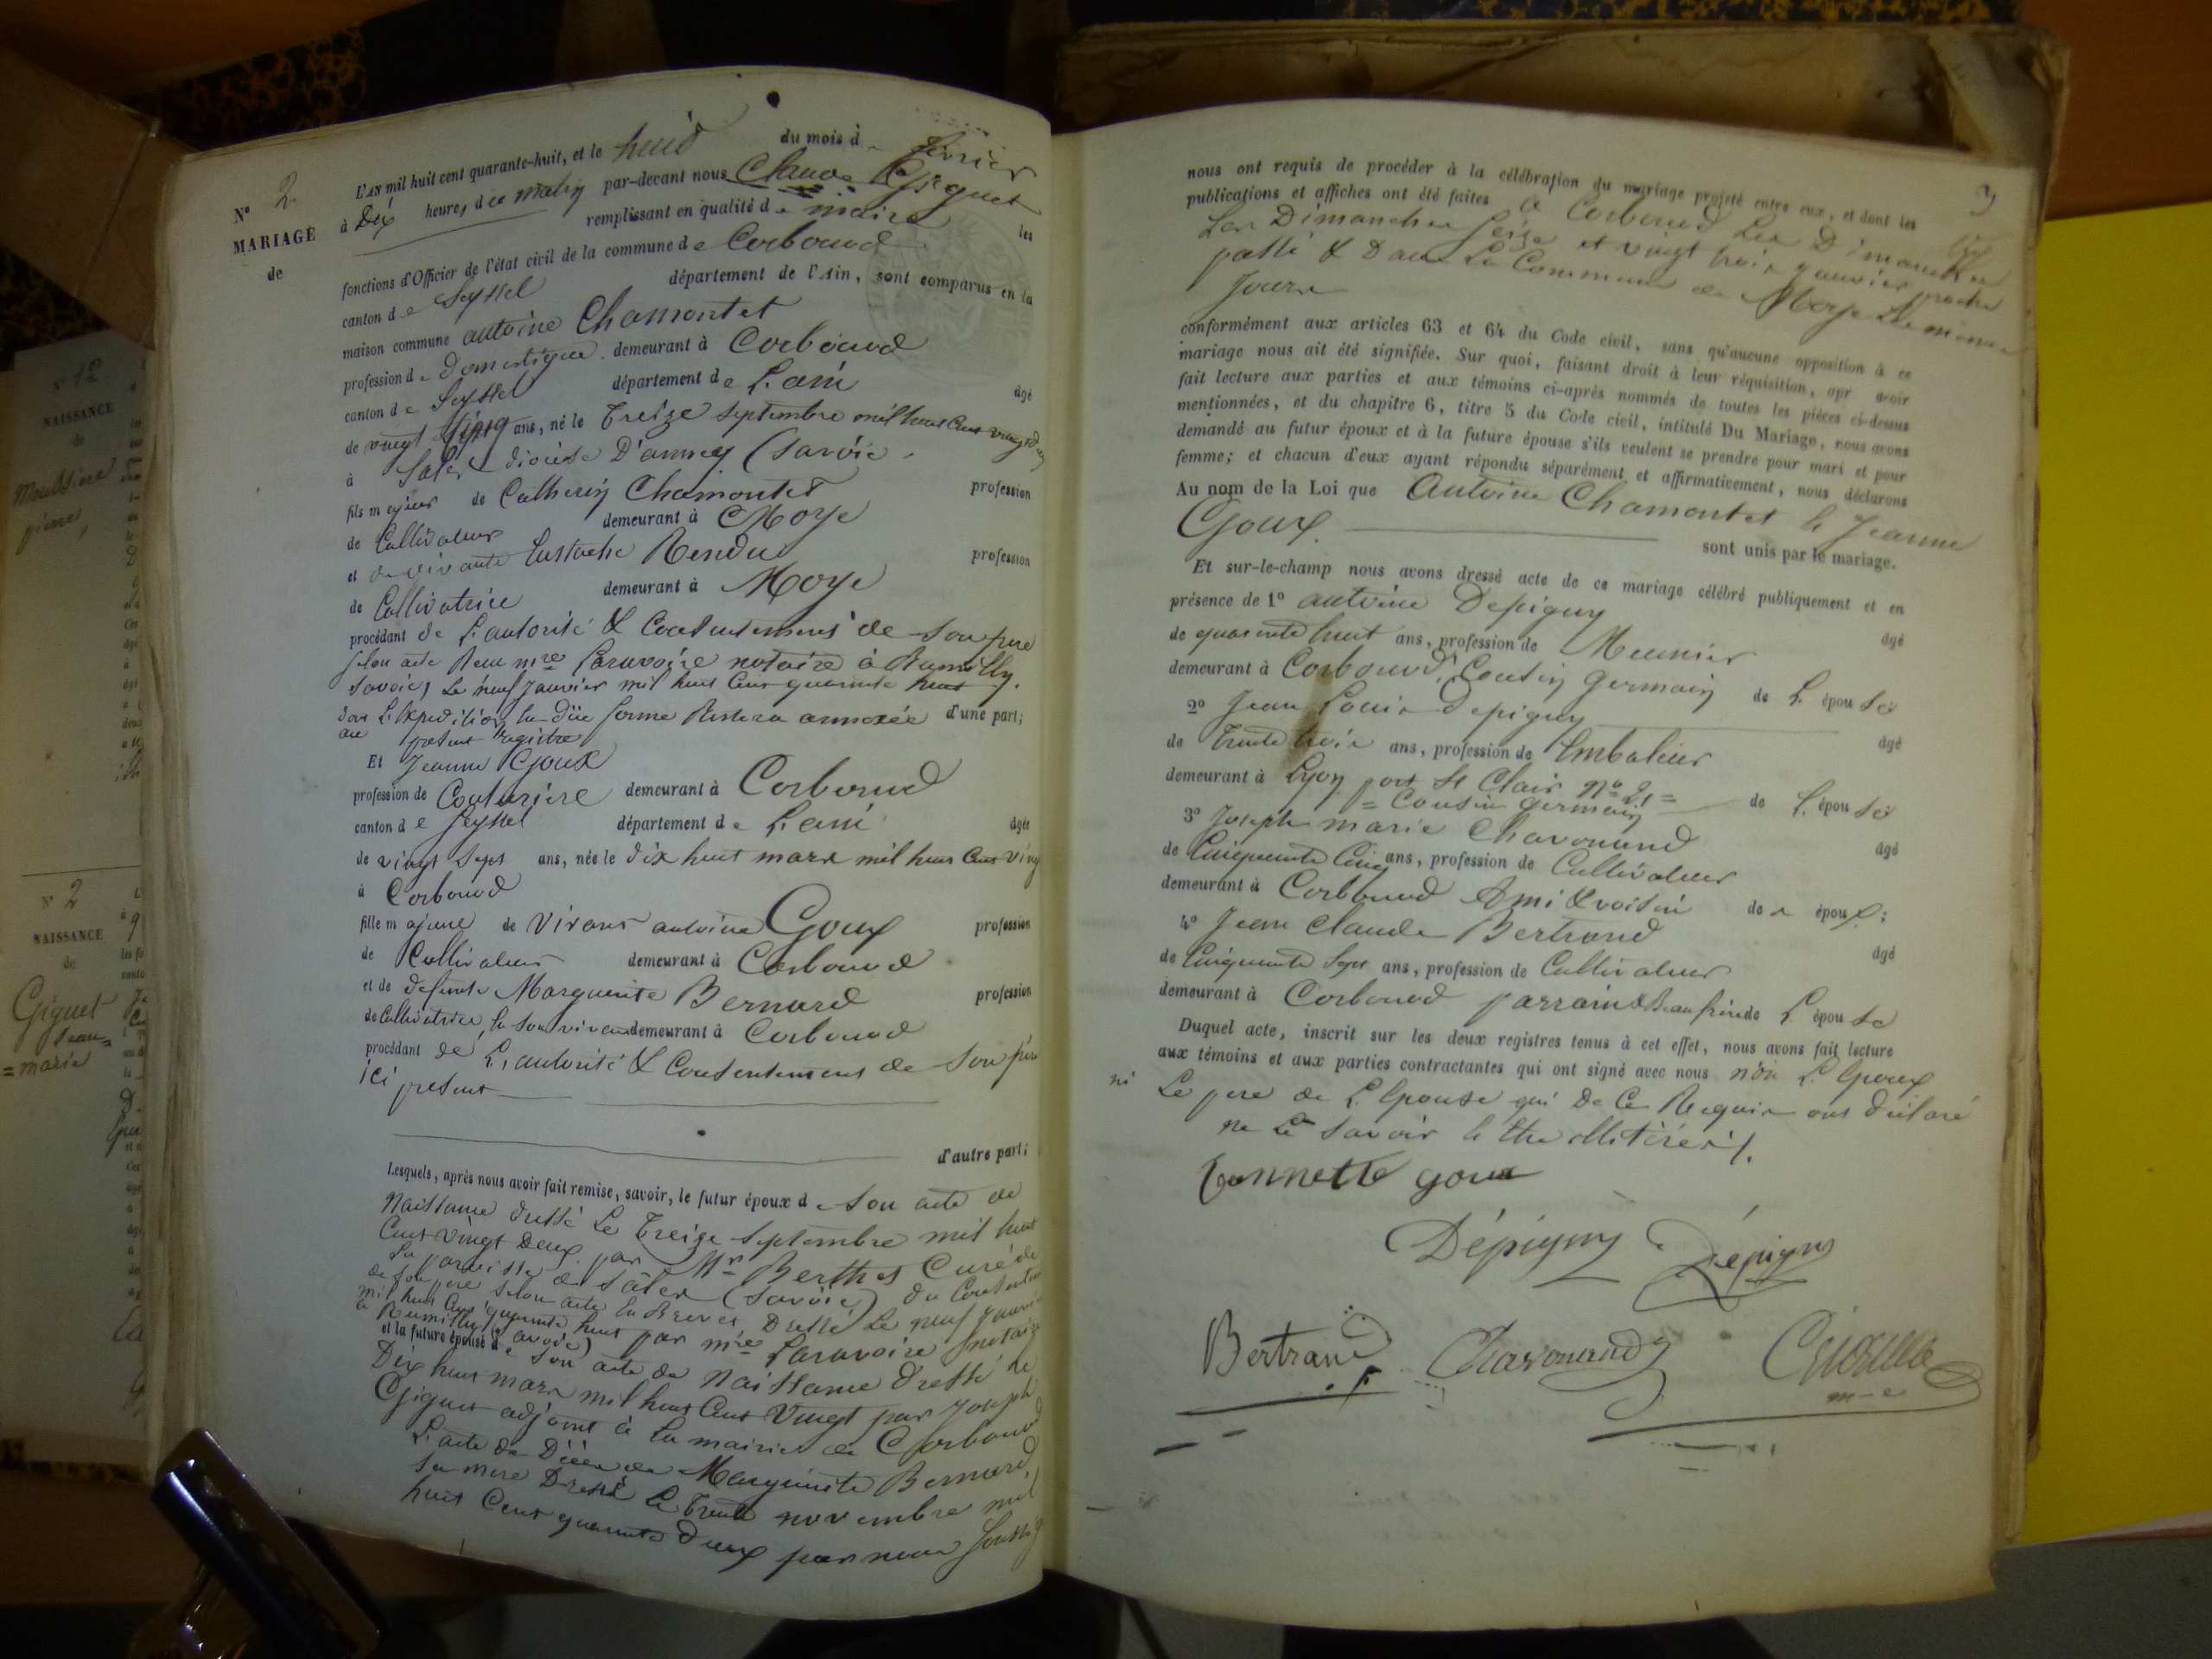 N° 2
MARIAGE
de
L'AN mil huit cent quarante-huit, et le huit du mois de février
à Dix heures du matin par-devant nous Claude Giguet
remplissant en qualité de maire les
fonctions d'Officier de l'état civil de la commune de Corbonod
canton de Seyssel département de l'Ain, sont comparus en la
maison commune antoine Chamontet
profession de domestique demeurant à Corbonod
canton de Seyssel département de L'ain âgé
de vingt cinq ans, né le Treize septembre mil huit Cent vingt deux
à Sales diocèse D'annecy (Savoie
fils majeur de Catherin Chamontet profession
de Cultivateur demeurant à Moye
et de vivante Eustache Rendu profession
de Cultivatrice demeurant à Moye
procédant de L'autorité & Consentement de son père
selon acte Reçu mre Laravoire notaire à Rumilly
Savoie, Le neuf janvier mil huit Cent quarante huit
dont L'Expedition en Düe forme Restera annexée d'une part;
au présent Registre
Et Jeanne Goux
profession de Couturière demeurant à Corbonod
canton de Seyssel département de L'ain âgée
de vingt Sept ans, née le dix huit mars mil huit Cent vingt
à Corbonod
fille majeure de vivant antoine Goux profession
de Cultivateur demeurant à Corbonod
et de defunte Marguerite Bernard profession
de Cultivatrice, En son vivant demeurant à Corbonod
procédant de L'autorité & Consentement de Son père
ici présent
d'autre part;
Lesquels, après nous avoir fait remise, savoir, le futur époux de Son acte de
Naissance dressé Le Treize Septembre mil huit
Cent vingt Deux par Mr Berthet Curé de
La paroisse de Sales (Savoie) du Consentement
de son père selon acte En Brevet Dressé Le neuf janvier
mil huit Cent quarante huit par mre Laravoire notaire
à Rumilly (Savoie)
et la future épouse de Son acte de Naissance dressé Le
Dix huit mars mil huit Cent vingt par Joseph
Giguet adjoint à La mairie de Corbonod
L'acte de Décès de Marguerite Bernard,
Sa mère Dressé Le Trente novembre mil
huit Cent quarante deux par nous Soussigné
3
nous ont requis de procéder à la célébration du mariage projeté entre eux, et dont les
publications et affiches ont été faites à Corbonod Les Dimanches
Les Dimanches Seize et vingt trois janvier proche
passé & Dans La Commune de Moye Les mêmes
Jours
conformément aux articles 63 et 64 du Code civil, sans qu'aucune opposition à ce
mariage nous ait été signifiée. Sur quoi, faisant droit à leur réquisition, apr avoir
fait lecture aux parties et aux témoins ci-après nommés de toutes les pièces ci-dessus
mentionnées, et du chapitre 6, titre 5 du Code civil, intitulé Du Mariage, nous avons
demandé au futur époux et à la future épouse s'ils veulent se prendre pour mari et pour
femme; et chacun d'eux ayant répondu séparément et affirmativement, nous déclarons
Au nom de la Loi que Antoine Chamontet & Jeanne
Goux sont unis par le mariage.
Et sur-le-champ nous avons dressé acte de ce mariage célébré publiquement et en
présence de 1° antoine Depigny âgé
de quarante huit ans, profession de Meunier
demeurant à Corbonod, Cousin germain de L'épouse
2° Jean Louis Depigny âgé
de Trente trois ans, profession de Embaleur
demeurant à Lyon port St Clair N° 21
= Cousin germain de L'épouse
3° Joseph marie Chavonand âgé
de Cinquante Cinq ans, profession de Cultivateur
demeurant à Corbonod Ami & voisin des époux;
4° Jean Claude Bertrand âgé
de Cinquante Sept ans, profession de Cultivateur
demeurant à Corbonod parrain & Beau frère de L'épouse
Duquel acte, inscrit sur les deux registres tenus à cet effet, nous avons fait lecture
aux témoins et aux parties contractantes qui ont signé avec nous non L'Epoux
ni Le père de L'Epouse qui De Ce Requis ont déclaré
ne Le Savoir & Etre illitérés.
tonnette goux
Dépigny Dépigny
Bertrand Chavonand
N° 12
NAISSANCE
de
pierre
N° 2
NAISSANCE
de
Giguet
Jean=
=marie